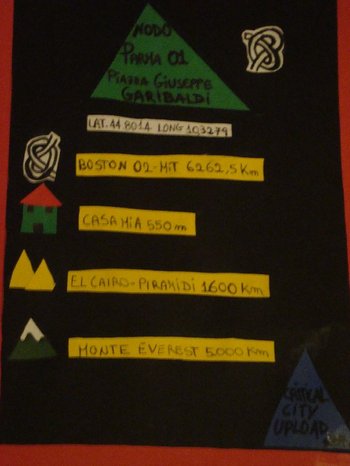 NODO
PARMA 01
PIAZZA GIUSEPPE
GARIBALDI
LAT. 44.8014 LONG 10,3279
BOSTON 02-MIT 6262,5 Km
CASA MIA 550 m
EL CAIRO-PIRAMIDI 1600 Km
MONTE EVEREST 5000 Km
CRITICAL
CITY
UPLOAD